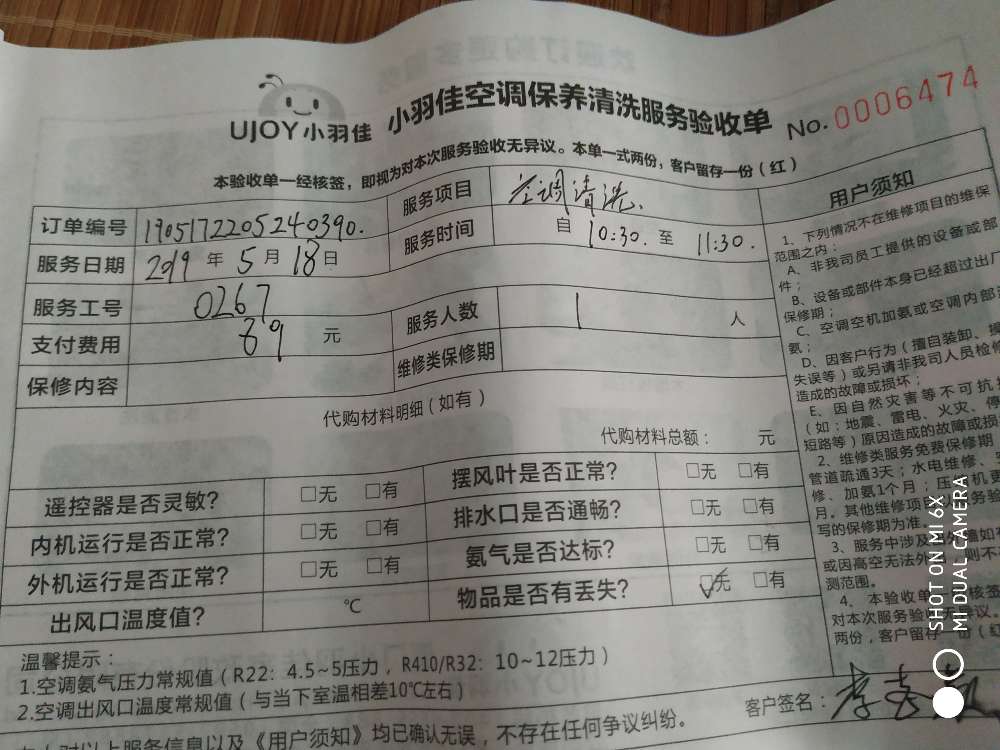 UJOY小羽佳 小羽佳空调保养清洗服务验收单 No.0006474
本验收单一经核签，即视为对本次服务验收无异议。本单一式两份，客户留存一份（红）
订单编号 1905172205240390. 服务项目 空调清洗.
服务日期 2019 年 5 月 18 日 服务时间 自 10:30. 至 11:30.
服务工号 0267
支付费用 89 元 服务人数 1 人
保修内容 维修类保修期
代购材料明细（如有）
代购材料总额： 元
遥控器是否灵敏？ □无 □有 摆风叶是否正常？ □无 □有
内机运行是否正常？ □无 □有 排水口是否通畅？ □无 □有
外机运行是否正常？ □无 □有 氨气是否达标？ □无 □有
出风口温度值？ ℃ 物品是否有丢失？ ☑无 □有
温馨提示：
1.空调氨气压力常规值（R22：4.5~5压力，R410/R32：10~12压力）
2.空调出风口温度常规值（与当下室温相差10℃左右）
对以上服务信息以及《用户须知》均已确认无误，不存在任何争议纠纷。
客户签名：
用户须知
1、下列情况不在维修项目的维保
范围之内：
A、非我司员工提供的设备或部
件；
B、设备或部件本身已经超过出厂
保修期；
C、空调空机加氨或空调内部
氨；
D、因客户行为（擅自装卸、
失误等）或另请非我司人员检修
造成的故障或损坏；
E、因自然灾害等不可抗
（如：地震、雷电、火灾、停
短路等）原因造成的故障或损
2、维修类服务免费保修期
管道疏通3天；水电维修、
修、加氨1个月；压 机更
月。其他维修项目 务验
写的保修期为准。
3、服务中涉及 墙如有
或因高空无法外 则不
测范围。
4、本验收单 核签
对本次服务验 无异议。
两份，客户留存一份（红
SHOT ON MI 6X
MI DUAL CAMERA